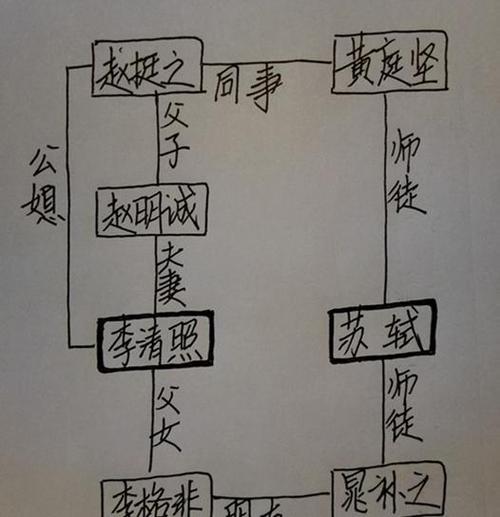 赵挺之
同事
黄庭坚
父子
师徒
公媳
赵明诚
夫妻
李清照
苏轼
父女
师徒
李格非
晁补之